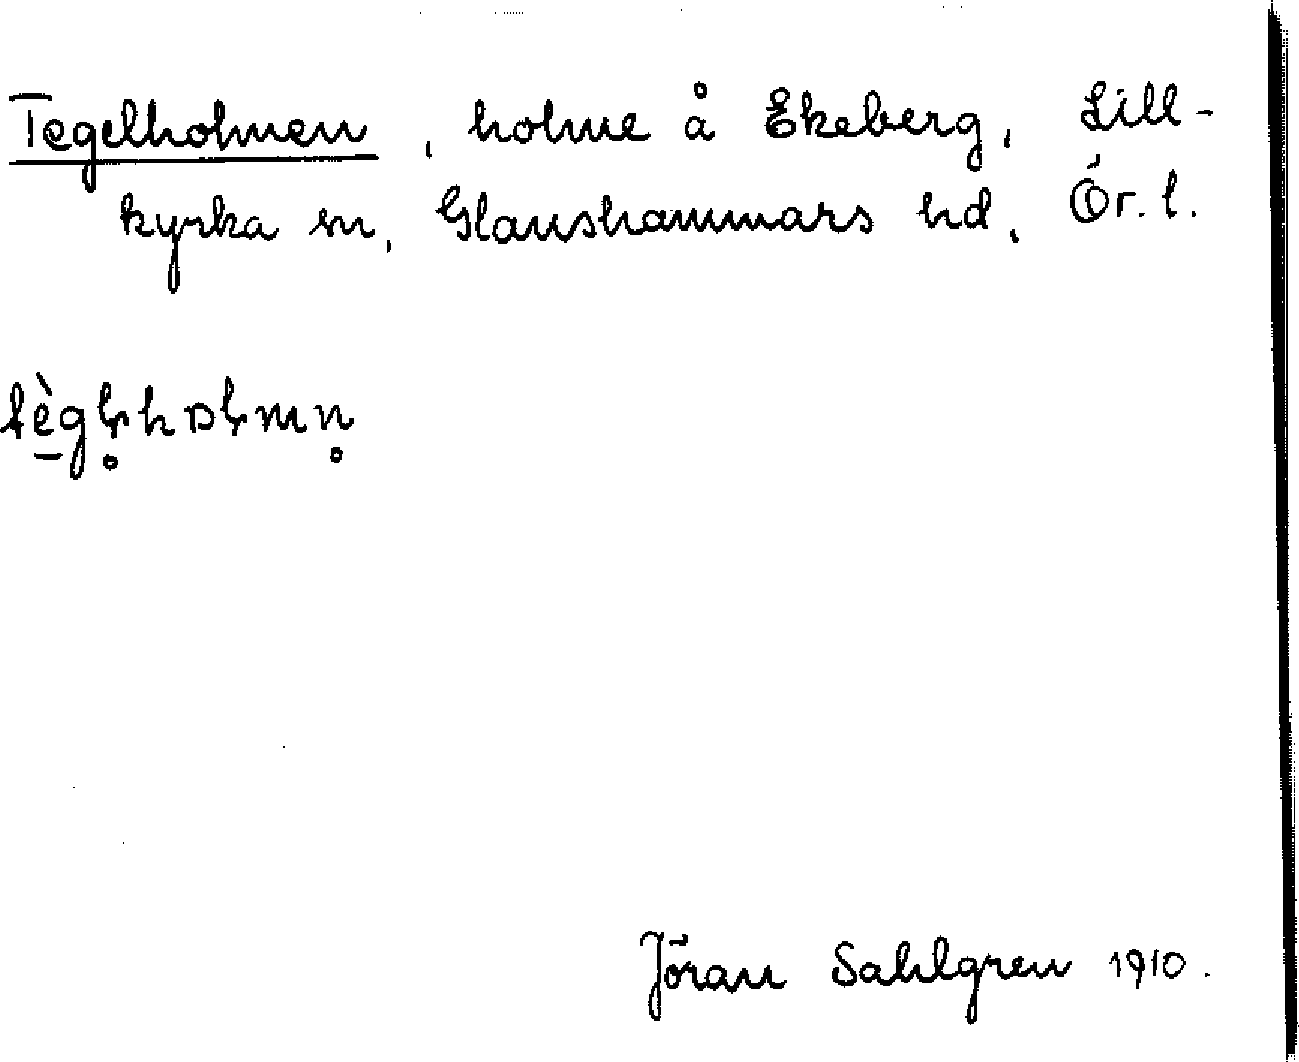 Tegelholmen, holme å Ekeberg, Lill-
kyrka sn, Glanshammars hd, Ör. l.
Jöran Sahlgren 1910.